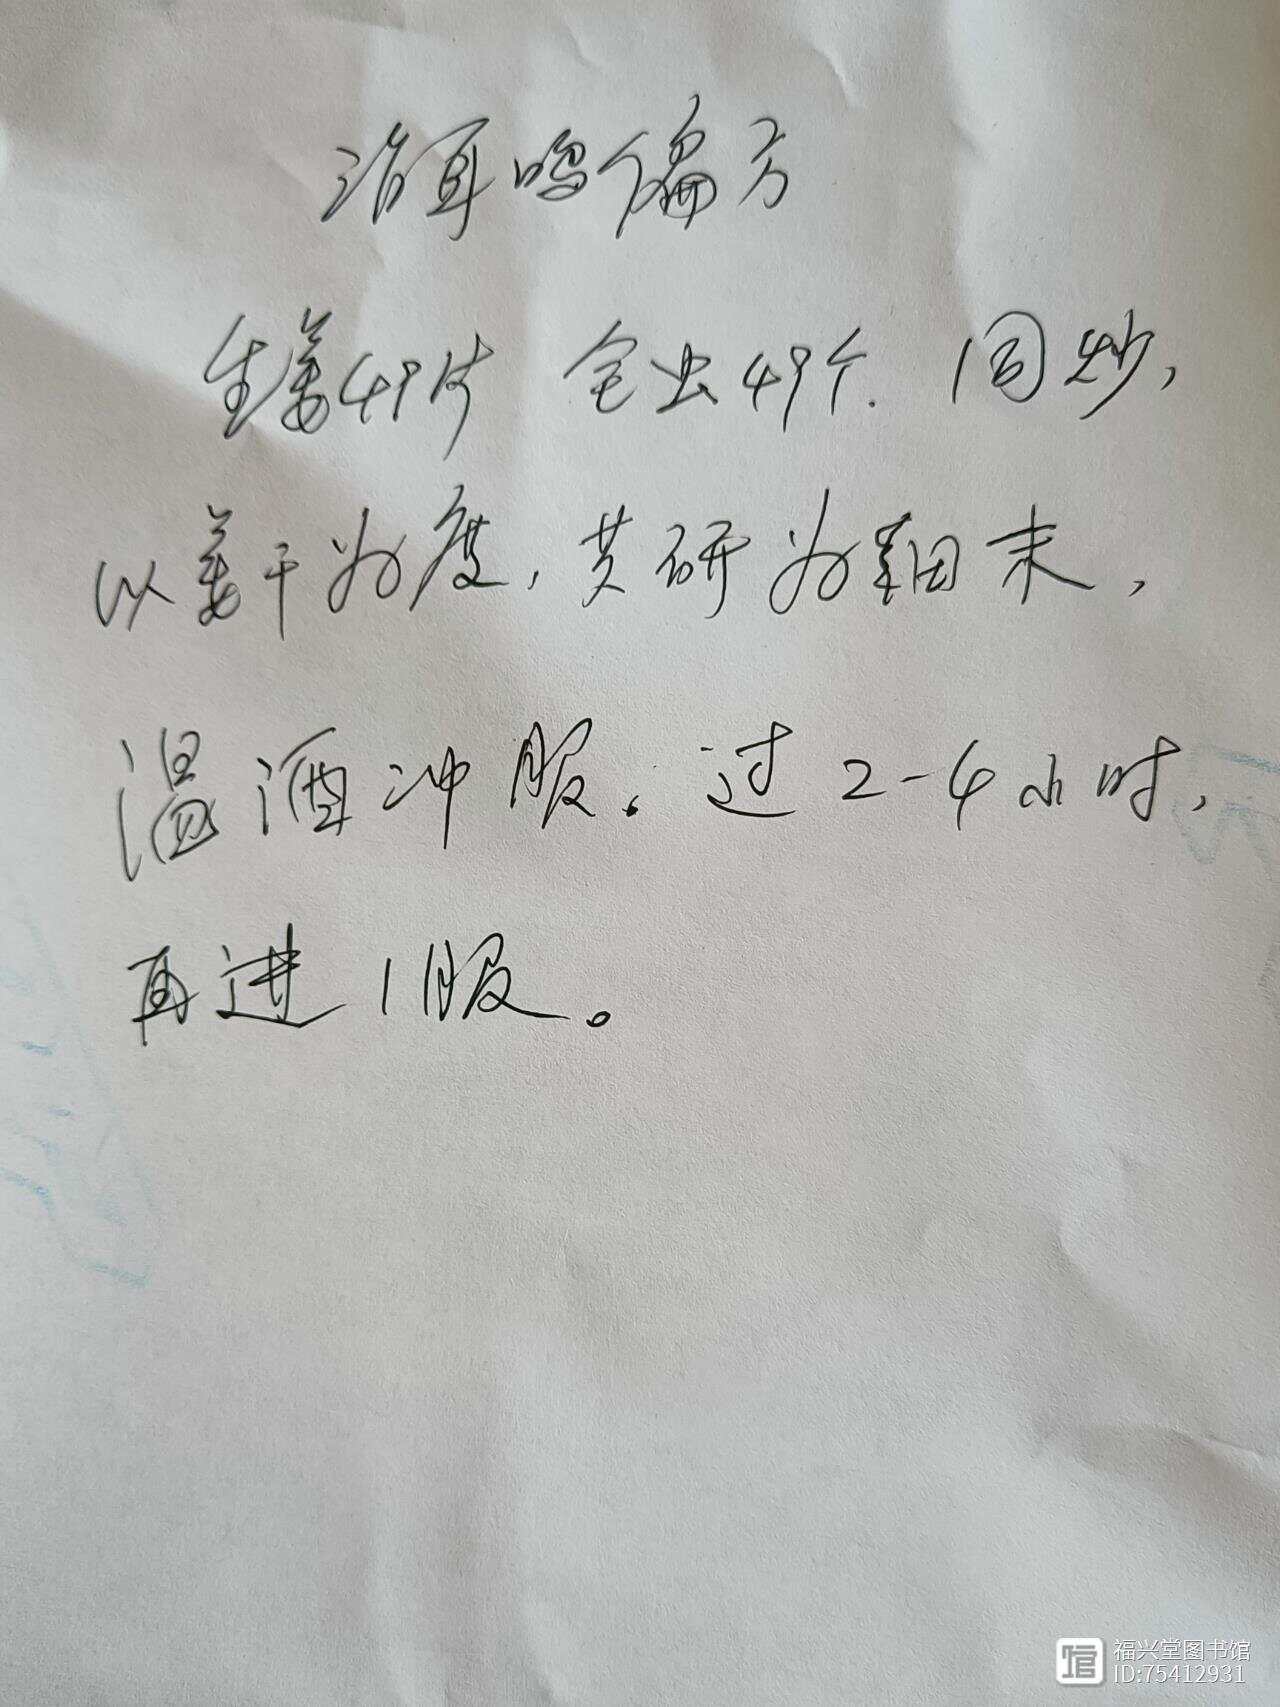 治耳鸣偏方
生姜49片 全虫49个. 同炒,
以姜干为度,共研为细末,
温酒冲服。过2-4小时,
再进1服。
福兴堂图书馆
ID:75412931